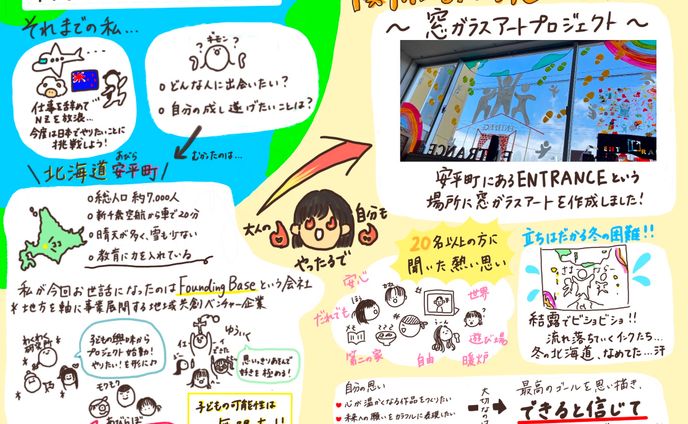 それまでの私...
仕事を辞めて
NZを放浪...
今度は日本でやりたいことに
挑戦しよう!
ギモン
どんな人に出会いたい?
自分の成し遂げたいことは?
むかったのは...
あびら
\ 北海道 安平町 /
総人口 約7,000人
新千歳空港から車で20分
晴天が多く、雪も少ない
教育に力を入れている
私が今回お世話になったのは Founding Base という会社
*地方を軸に事業展開する地域共創ベンチャー企業
わくわく
研究所
子どもの興味から
プロジェクト始動!
やりたい!を形に♪
ゆうい〜く
思いっきりあそんで
好きを極める!
モクモク
あびらぼ
子どもの可能性は
大人の
自分も
やったるで
〜 窓ガラスアートプロジェクト 〜
ENTRANCE
安平町にあるENTRANCEという
場所に窓ガラスアートを作成しました!
20名以上の方に
聞いた熱い思い
安心
だれでも
世界
第二の家
自由
遊び場
暖炉
立ちはだかる冬の困難!!
結露でビショビショ!!
流れ落ちていくインクたち...
冬の北海道、なめてた...汗
自分の思い
心が温かくなる作品をつくりたい
未来への願いをカラフルに表現したい
大切なのは
最高のゴールを思い描き、
できると信じて